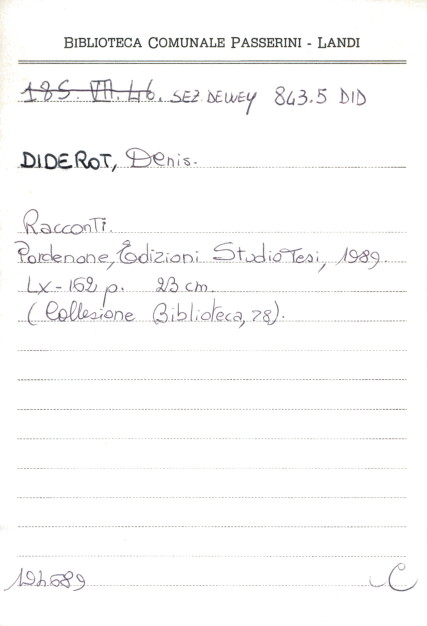 BIBLIOTECA COMUNALE PASSERINI - LANDI
185. VII. 46. SEZ. DEWEY 843.5 DID
DIDEROT, Denis.
Racconti.
Pordenone, Edizioni StudioTesi, 1989.
LX - 162 p. 23 cm.
(Collezione Biblioteca, 78).
194689
C